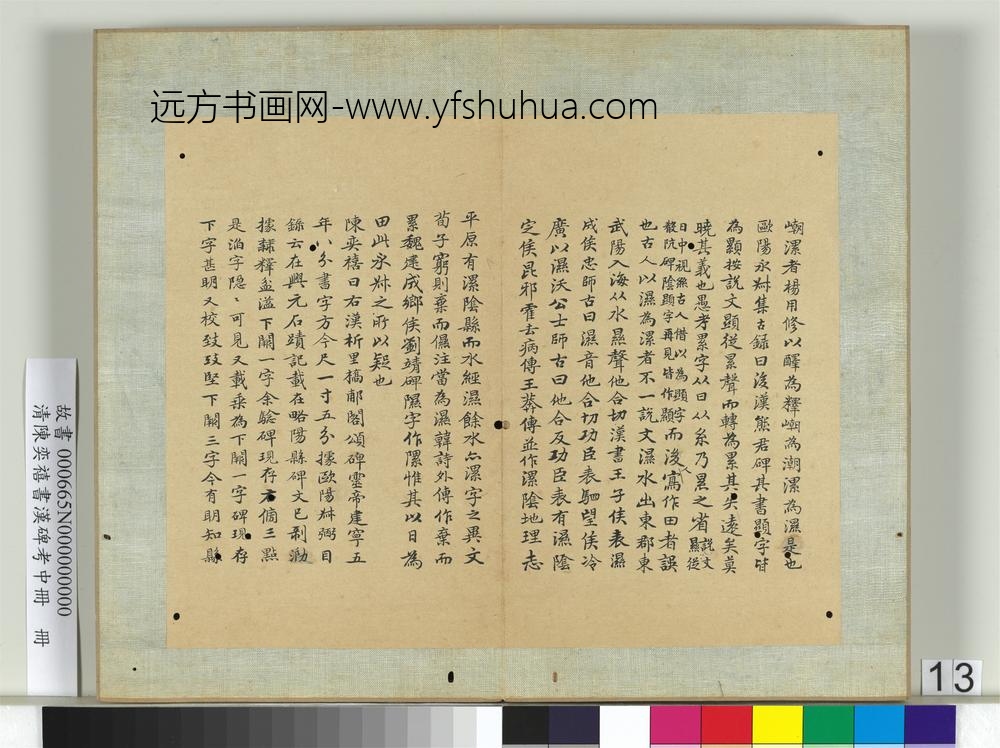 远方书画网-www.yfshuhua.com
嶹漯者楊用修以嶧為釋嶹為潮漯為濕是也
歐陽永叔集古錄曰後漢熊君碑其書顯字皆
為顯按說文顯從㬎聲而轉為累其失遠矣莫
曉其義也愚考累字从日从糸乃㬎之省說文顯從
日中視絲古人借以為顯字
殽阬碑陰顯字再見皆作顯
而後人寫作田者誤
也古人以濕為漯者不一說文濕水出東郡東
武陽入海从水㬎聲他合切漢書王子侯表濕
成侯忠師古曰濕音他合切功臣表駟望侯冷
廣以濕沃公士師古曰他合反功臣表有濕陰
定侯昆邪霍去病傳王莽傳並作漯陰地理志
平原有漯陰縣而水經濕餘水亦漯字之異文
荀子窮則棄而儑注當為濕韓詩外傳作棄而
累魏建成鄉侯劉靖碑隰字作隰惟其以日為
田此永叔之所以疑也
陳奕禧曰右漢析里橋郙閣頌碑靈帝建寧五
年八分書字方今尺一寸五分據歐陽叔弼目
錄云在興元石蹟記載在略陽縣碑文已剝泐
據隸釋盖溢下闕一字余驗碑現存方偏三點
是治字隱〻可見又載乘為下闕一字碑現存
下字甚明又校致攻堅下闕三字今有明知縣
故書 000665N000000000
清陳奕禧書漢碑考中冊 冊
13